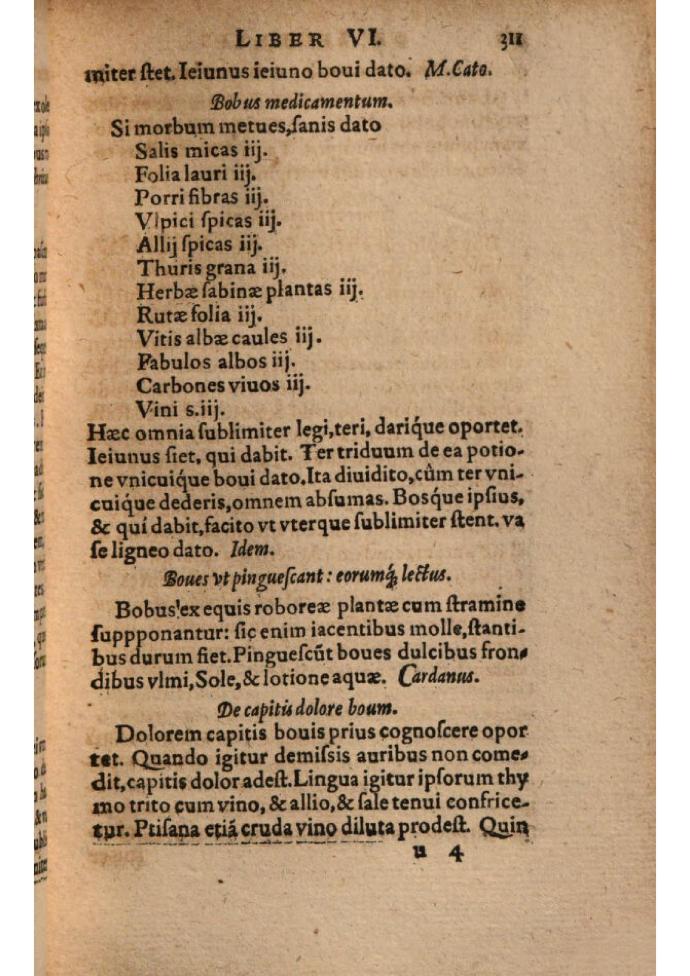 LIBER VI. 311
miter ſtet. Ieiunus ieiuno boui dato. M.Cato.
Bobus medicamentum.
Si morbum metues,ſanis dato
Salis micas iij.
Folia lauri iij.
Porri fibras iij.
Vlpici ſpicas iij.
Allij ſpicas iij.
Thuris grana iij.
Herbæ ſabinæ plantas iij.
Rutæ folia iij.
Vitis albæ caules iij.
Fabulos albos iij.
Carbones viuos iij.
Vini s.iij.
Hæc omnia ſublimiter legi,teri, dariq́ue oportet.
Ieiunus ſiet, qui dabit. Ter triduum de ea potio-
ne vnicuiq́ue boui dato.Ita diuidito,cùm ter vni-
cuiq́ue dederis,omnem abſumas. Bosq́ue ipſius,
& quí dabit,facito vt vterque ſublimiter ſtent. va
ſe ligneo dato. Idem.
Boues vt pingueſcant : eorumq́; lectus.
Bobus ex equis roboreæ plantæ cum ſtramine
ſuppponantur: ſic enim iacentibus molle,ſtanti-
bus durum fiet.Pingueſcūt boues dulcibus fron-
dibus vlmi, Sole, & lotione aquæ. Cardanus.
De capitis dolore boum.
Dolorem capitis bouis prius cognoſcere opor
tet. Quando igitur demiſsis auribus non come-
dit,capitis dolor adeſt.Lingua igitur ipſorum thy
mo trito cum vino, & allio, & ſale tenui confrice-
tur. Ptiſana etiā cruda vino diluta prodeſt. Quin
u 4